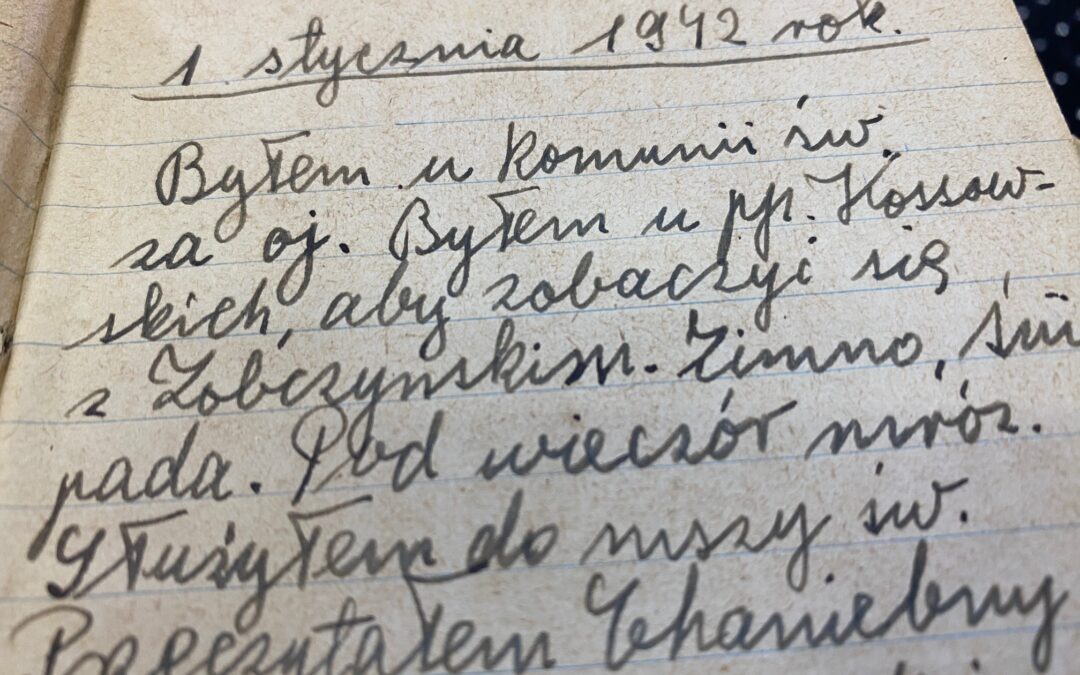 1 stycznia 1942 rok.
Byłem u Komunii św.
za oj. Byłem u pp. Kossow-
skich, aby zobaczyć się
z Zobczyńskim. Zimno,
pada. Pod wieczór mróz.
Służyłem do mszy św.
Przeczytałem